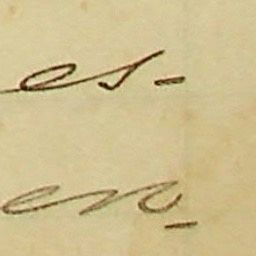 es-
en-